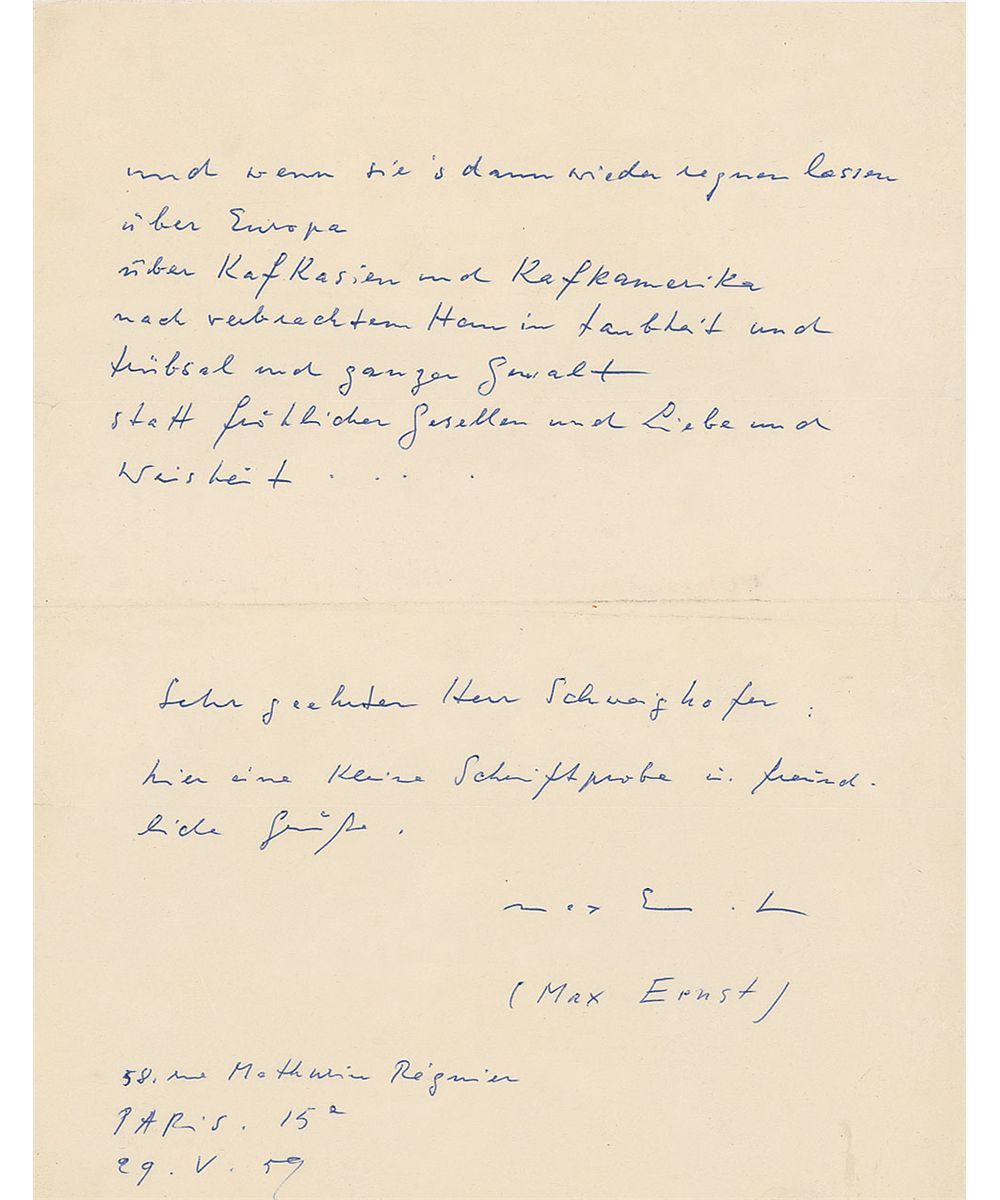 und wenn sie's dann wieder regnen lassen
über Europa
über Kafkasien und Kafkamerika
nach verbrachtem in taubheit und
trübsal und ganzer Gewalt
statt fröhlicher Gesellen und Liebe und
Weisheit . . . .
Sehr geehrter Herr Schweighofer :
hier eine kleine Schriftprobe u. freund-
liche Grüße.
max Ernst
(Max Ernst)
58. rue Mathurin Régnier
PARiS. 15e
29. V. 59